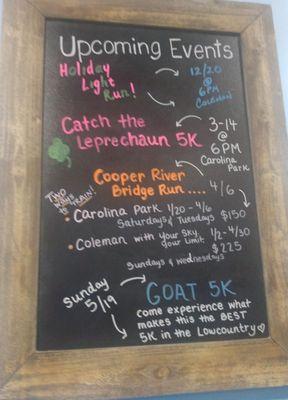 Upcoming Events
Holiday
Light
Run!
12/20
@
6PM
Coleman
Catch the
Leprechaun 5K
3-14
@
6PM
Carolina
Park
Cooper River
Bridge Run ....
4/6
TWO
WAYS
to
TRAIN!
• Carolina Park 1/20 - 4/6
Saturdays & Tuesdays
$150
• Coleman with Your Sky,
your Limit 1/2-4/30
$225
Sundays & Wednesdays
Sunday
5/19
GOAT 5K
come experience what
makes this the BEST
5K in the Lowcountry